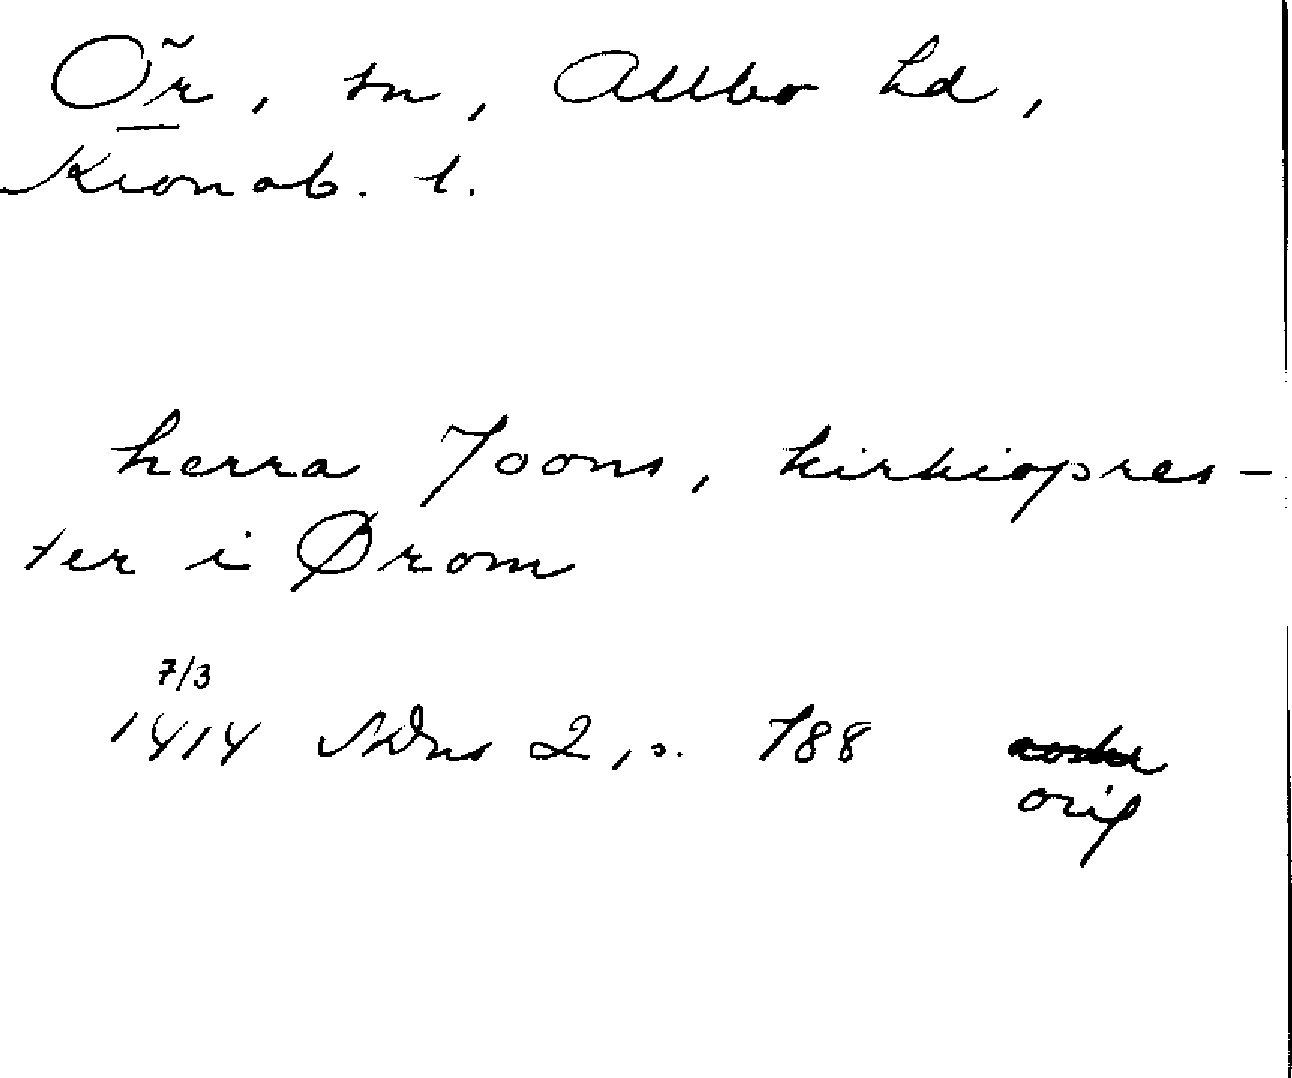 Õr, sn, Allbo hd,
Kronob. l.
herra Joons, kirkiopres-
ter i Ørom
7/3
1414 SDns 2, s. 788
orig